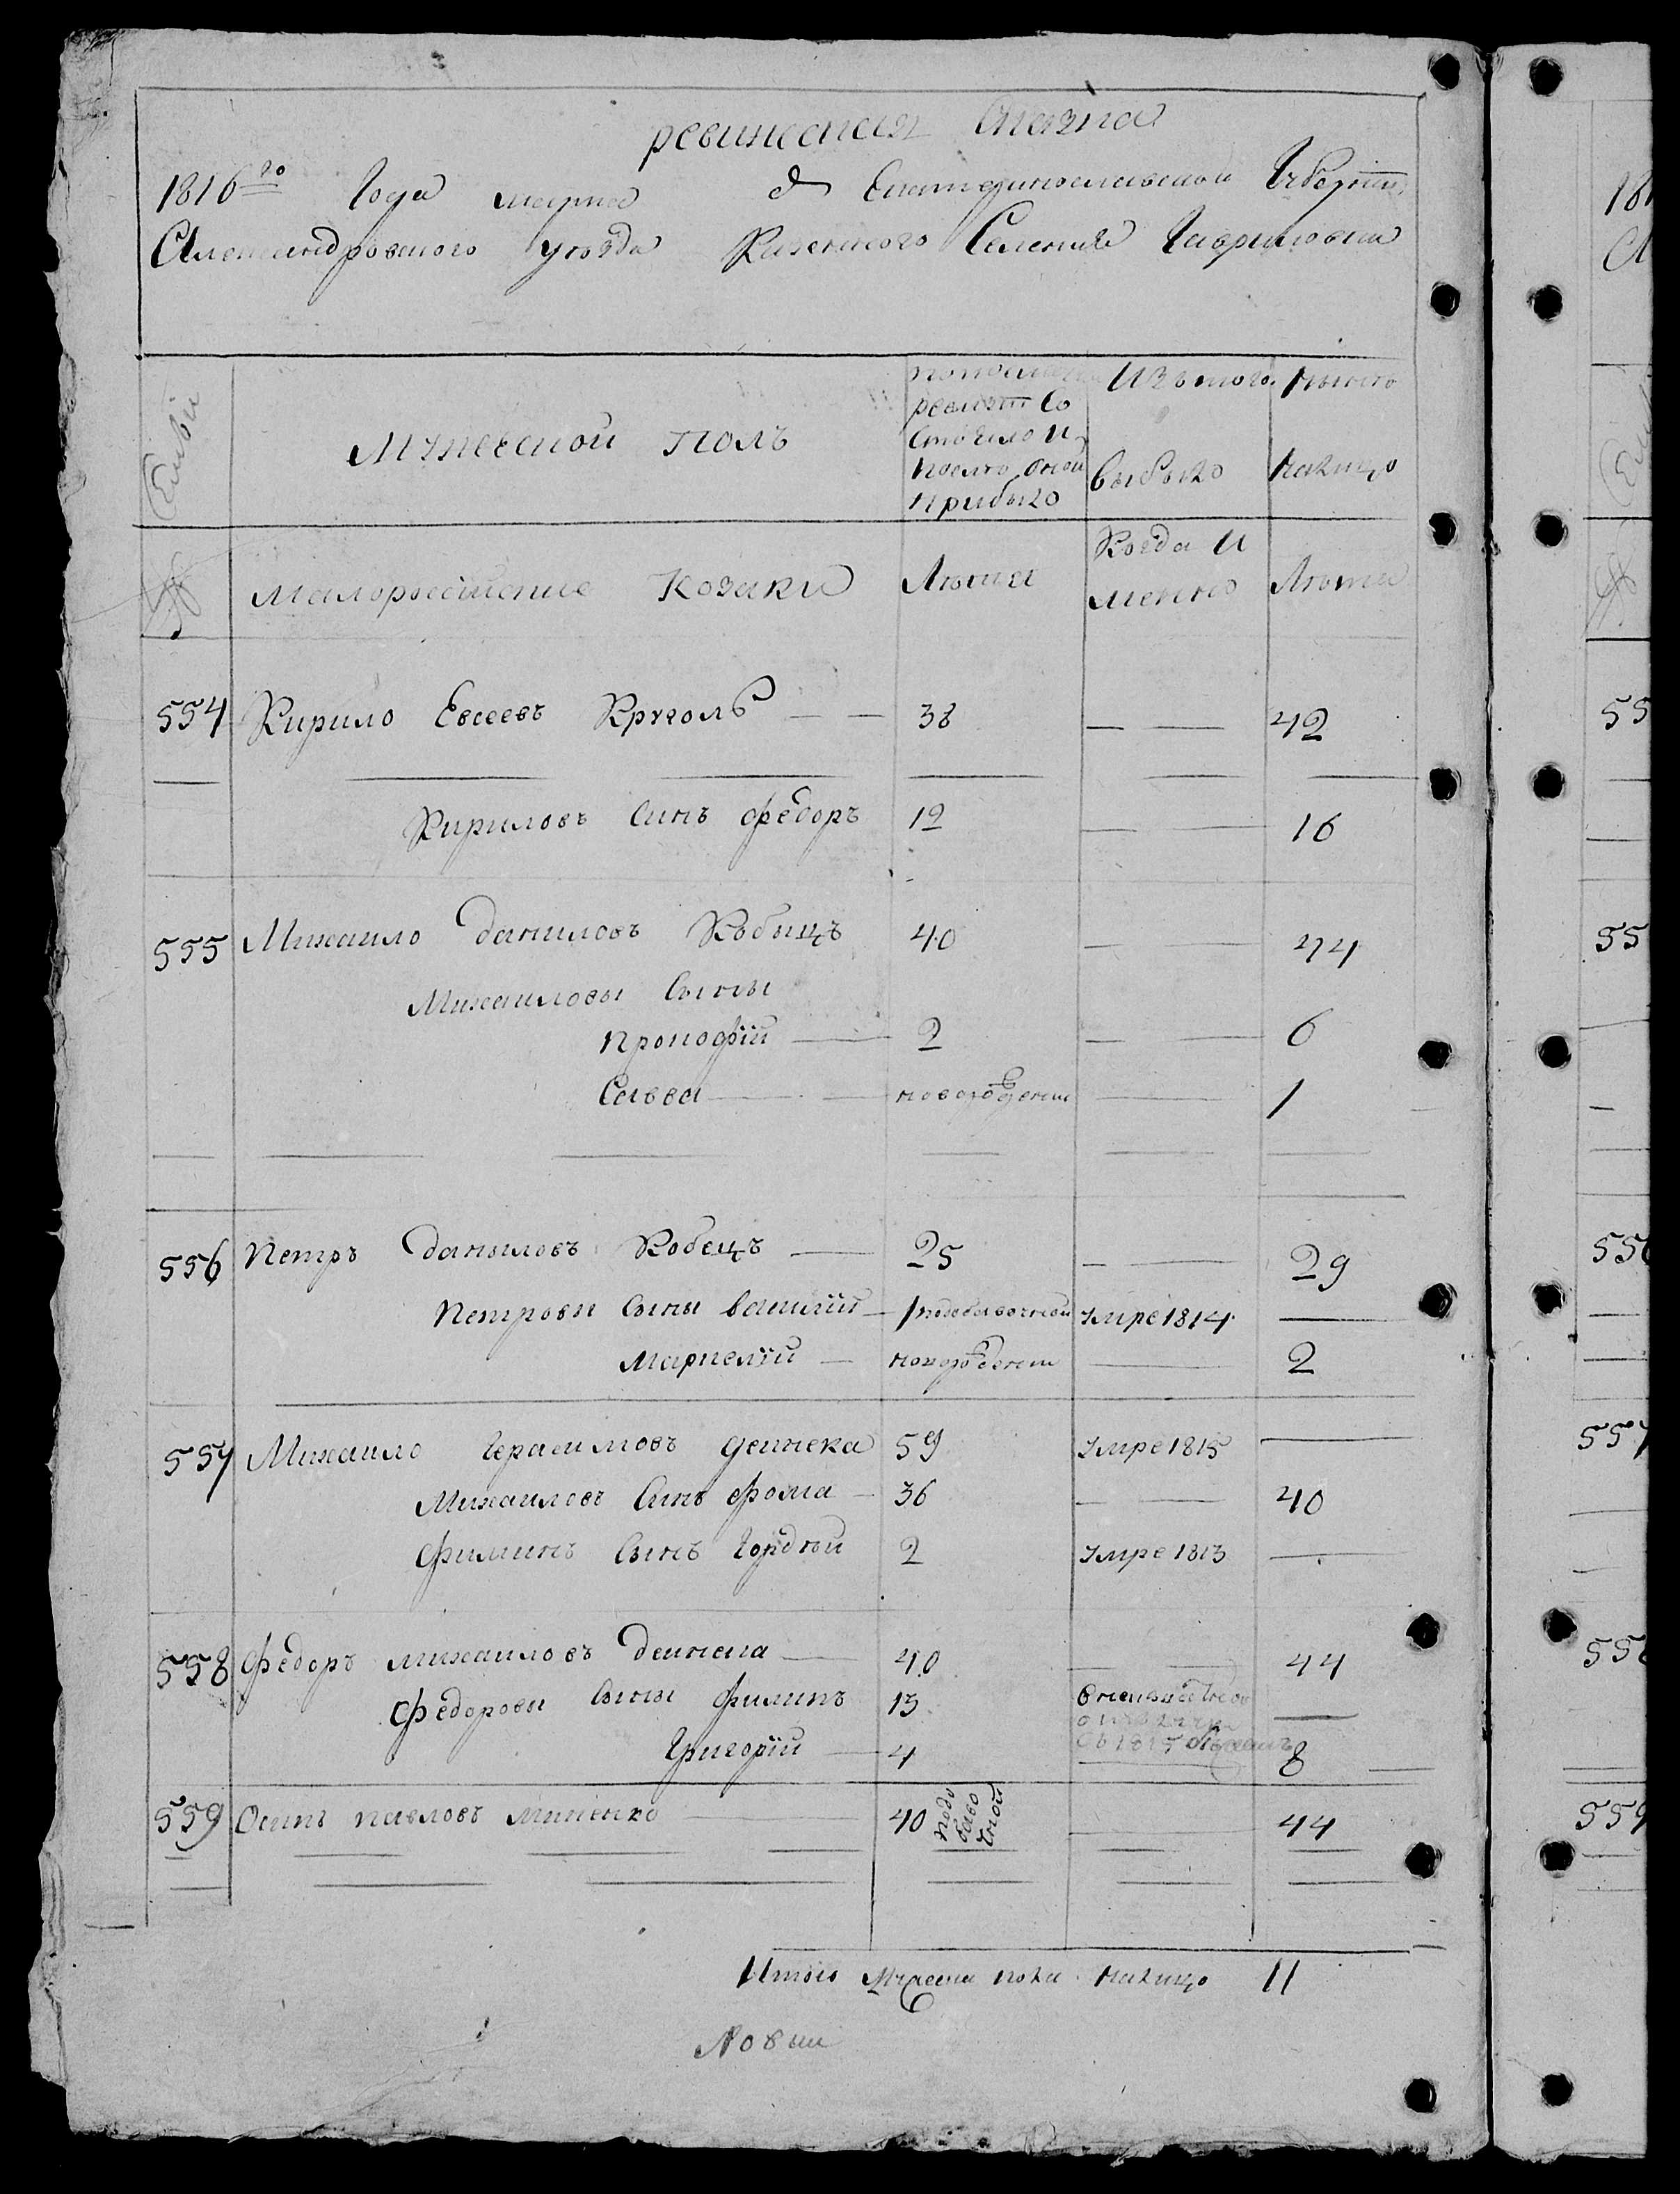 ревижская сказка
1816го Года марта Д Екатеринославской Губернии
Александровского уезда Казенного Селения Гавриловки
Семьи
Мужеской полъ
по последней ревизіи Состояло и после оной прибыло
Изъ того выбыло
ныне налицо
№
Малоросийские Козаки
Лета
Когда и менно
Лета
554 Кирило Евсеевъ Круголь — — 38 — — 42
Кириловъ Синъ федоръ 12 — — 16
555 Михаило даниловъ Кобыцъ 40 — — 44
Михаиловы Сыны
Прокофій — 2 — — 6
Савва — — новорожденн — 1
556 Петръ даниловъ Кобецъ — 25 — — 29
Петрови Сыны василій — 1 подбавочной Умре 1814 —
Маркелій — новорожденн — 2
557 Михаило Герасимовъ дейнека 59 Умре 1815 —
Михаиловъ Синъ фома — 36 — — 40
Филинъ Сынъ Гордѣй 2 Умре 1813 —
558 федоръ михаиловъ дейнека — 40 — — 44
федорови Сыны филипъ 13 —
Григорій — 4 — 8
559 Осипъ павловъ Миненко — 40 подбавочной — 44
Итого Мужеска пола налицо 11